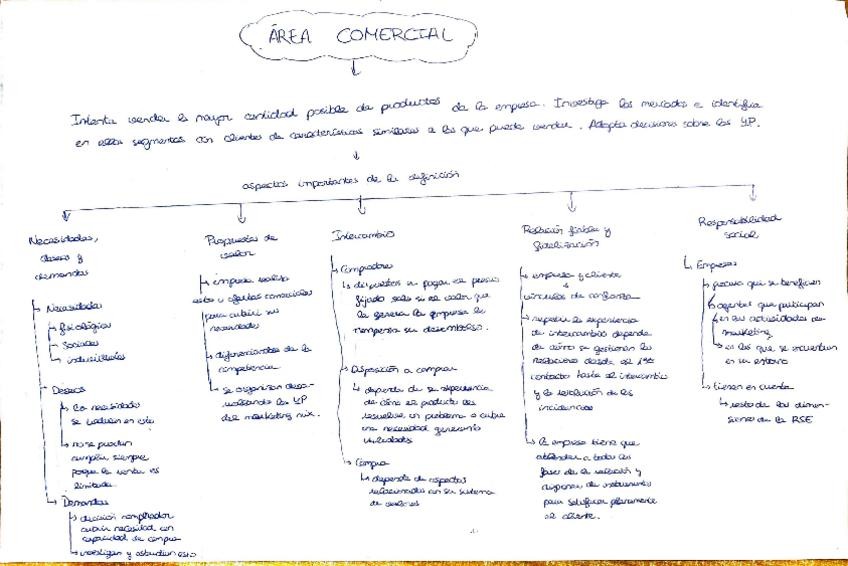 ÁREA COMERCIAL
Intenta vender la mayor cantidad posible de productos de la empresa. Investiga los mercados e identifica
en ellos segmentos con clientes de características similares a los que puede vender. Adopta decisiones sobre las 4P.
aspectos importantes de la definición
Necesidades,
deseos y
demandas
Necesidades
fisiológicas
Sociales
individuales
Deseos
las necesidades
se traducen en este
no se pueden
cumplir siempre
porque la renta es
limitada
Demandas
decisión comprador
cubrir necesidad con
capacidad de compra
investigan y estudian esto
Propuestas de
valor
empresa realiza
esta u ofertas comerciales
para cubrir sus
necesidades
diferenciándose de la
competencia
se organizan desa-
rrollando las 4P
del marketing mix.
Intercambio
Compradores
dispuestos a pagar el precio
fijado solo si el valor que
le genera la empresa le
compensa su desembolso.
Disposición a comprar
depende de su experiencia
de cómo el producto les
resuelve un problema o cubre
una necesidad generando
utilidades
Compra
depende de aspectos
relacionados con su sistema
de valores
Relación fiable y
fidelización
empresa y cliente
vínculos de confianza
repetir la experiencia
de intercambio depende
de cómo se gestionen las
relaciones desde el 1er
contacto hasta el intercambio
y la resolución de las
incidencias
la empresa tiene que
atender a todas las
fases de la relación y
disponer de instrumentos
para satisfacer plenamente
al cliente.
Responsabilidad
social
Empresas
procura que se beneficien
agentes que participan
en las actividades de
marketing
en los que se encuentran
en su entorno
tienen en cuenta
resto de las dimen-
siones de la RSE